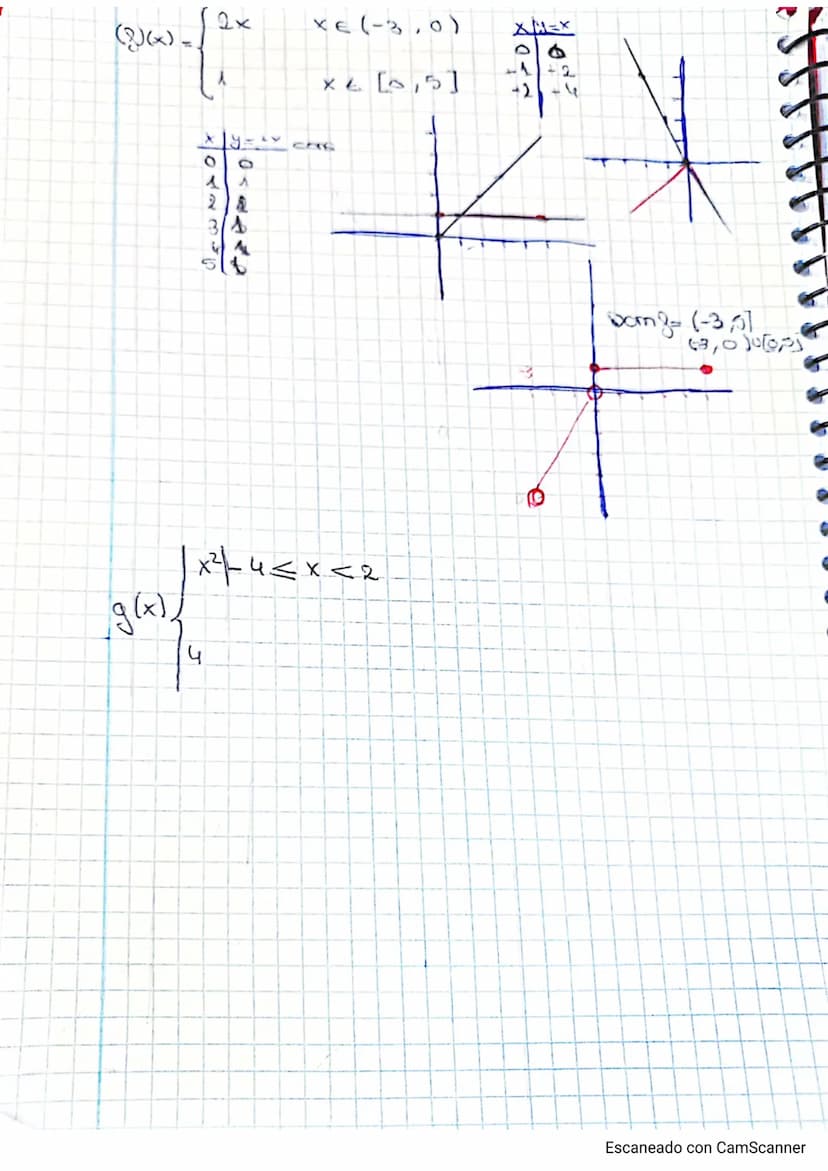 (f)(x) = { 2x x ∈ (-3, 0)
1 x ∈ [0, 5]
x | y=x
0 | 0
-1 | -2
-2 | -4
x | y=
0 | 0
1 | 1
2 | 1
3 | 1
4 | 1
5 | 1
Dom f = (-3, 5]
(-3, 0) ∪ [0, 5]
-3
g(x) { x² | -4 ≤ x < 2
4
Escaneado con CamScanner